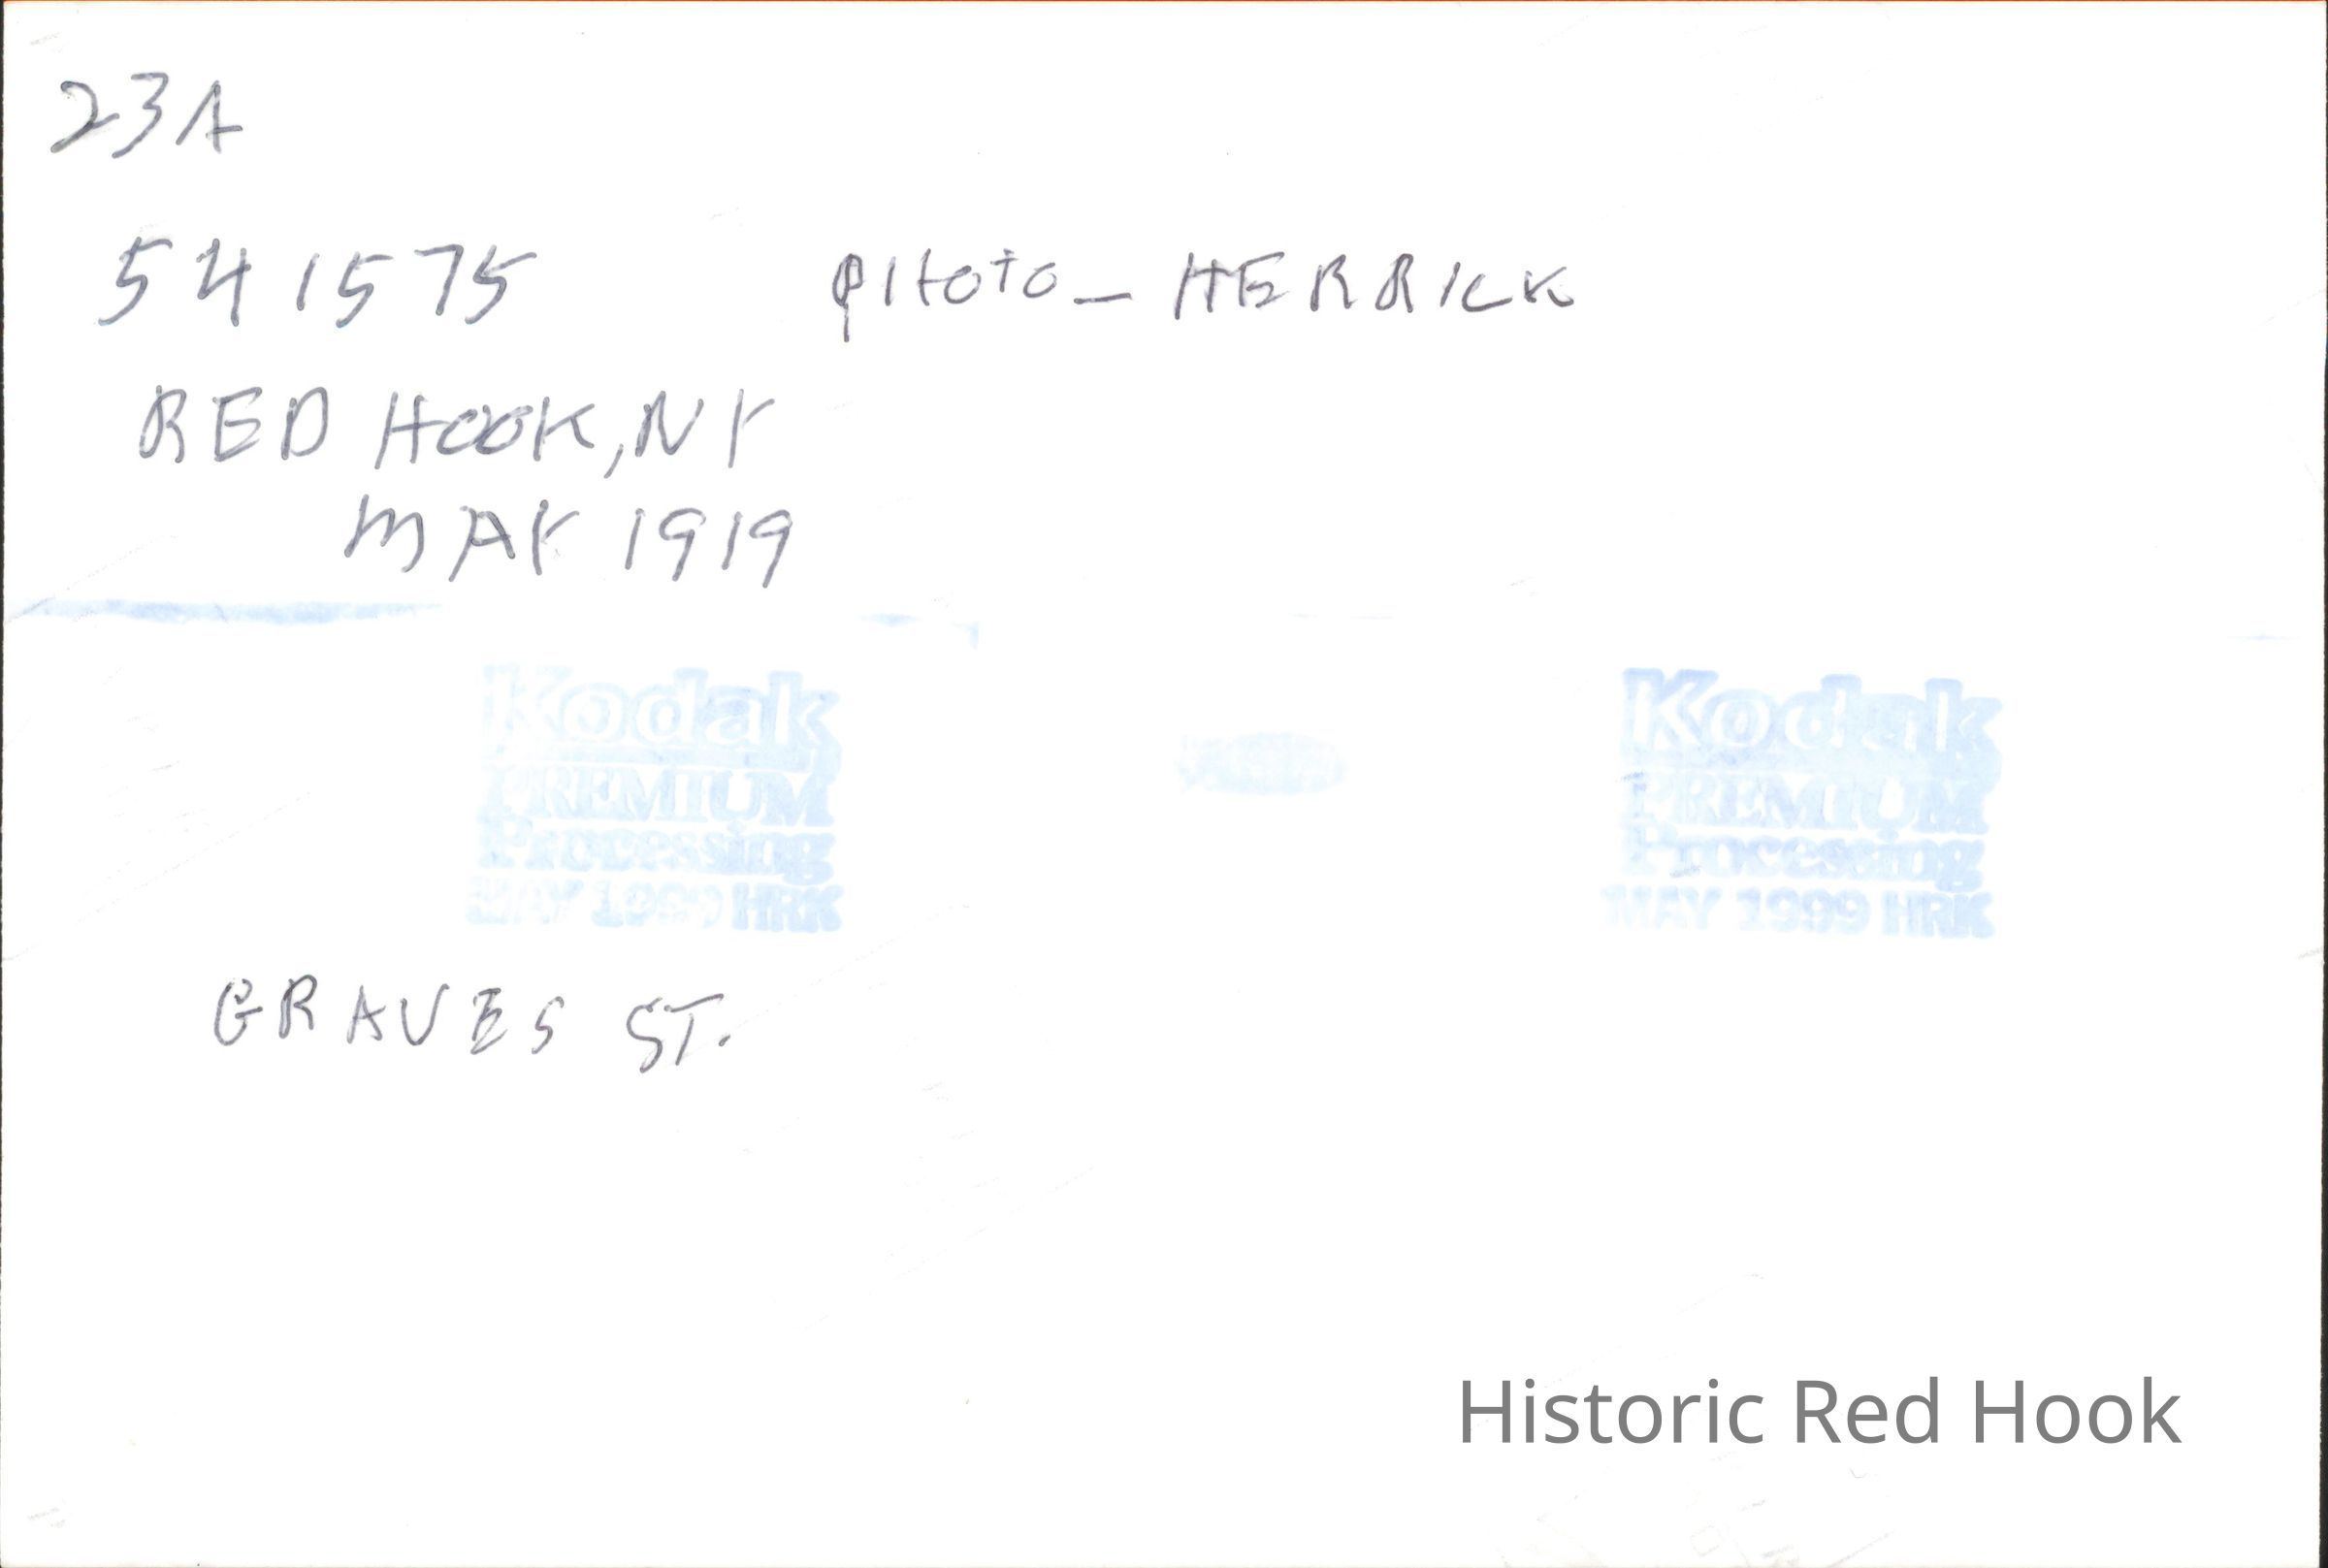 23A
541575 PHOTO - HERRICK
RED HOOK, NY
MAY 1919
Kodak Kodak
PREMIUM PREMIUM
Processing Processing
MAY 1999 HRK MAY 1999 HRK
GRAVES ST.
Historic Red Hook